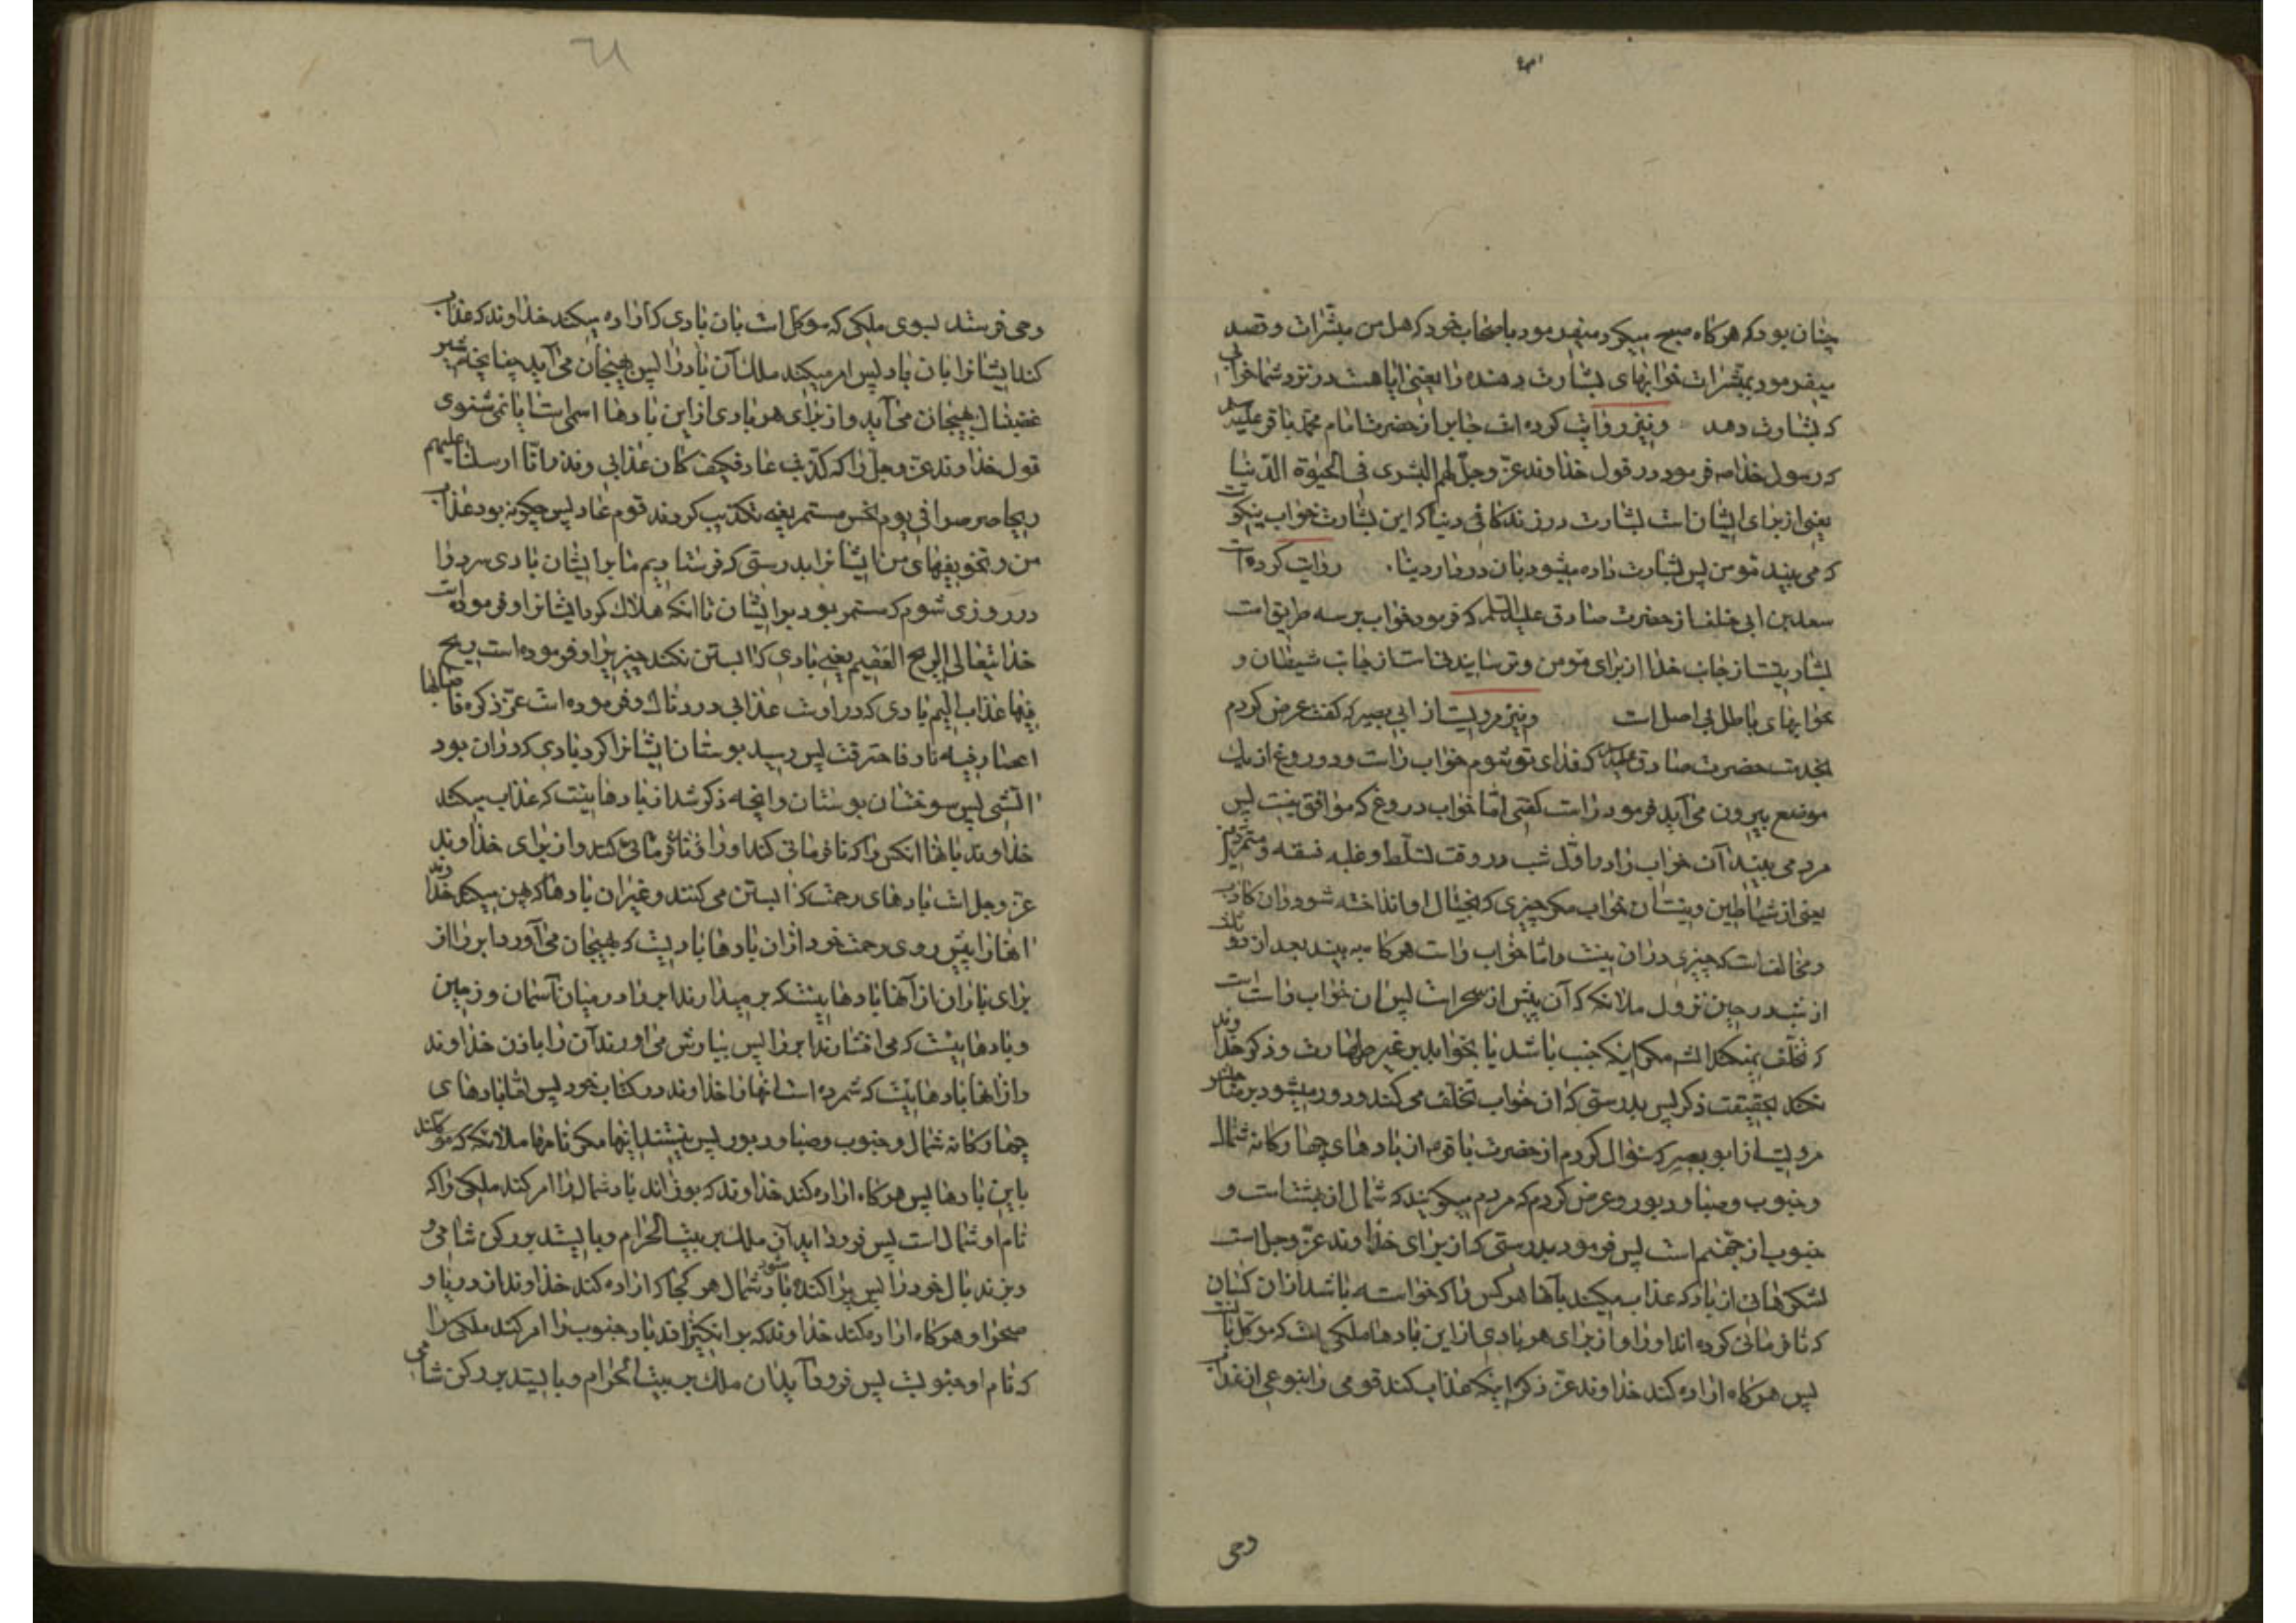 چنان بود که هرکاه صبح میکرد میفرمود باصحاب خود که هل من مبشرات و قصد
میفرمود بمبشرات خوابهای بشارت دهنده را یعنی ایا هست در نزد شما خوابی
که بشارت دهد و نیز روایت کرده است جابر از حضرت امام محمد باقر علیه السلام
که رسول خدا صه فرمود در قول خداوند عزّ وجلّ لهم البشری فی الحیوة الدّنیا
یعنی از برای ایشان است بشارت در زندکانی دنیا که این بشارت خواب نیکوست
که می بیند مؤمن پس بشارت داده میشود بان در دار دنیا. روایت کرده است
سعد بن ابی خلف از حضرت صادق علیه السلام که فرمود خواب بر سه طریق است
بشاریتست از جانب خدا از برای مؤمن و ترسانیدنی است از جانب شیطان و
خوابهای باطل بی اصل است و نیز مرویست از ابی بصیر که کفت عرض کردم
بخدمت حضرت صادق علیه السلام که فدای تو شوم خواب راست و دروغ از یک
موضع بیرون می آید فرمود راست کفتی امّا خواب دروغ که موافق نیست پس
مرد می بیند آن خواب را در اوّل شب در وقت تسلّط و غلبه فسقه و متمرّدین
یعنی از شیاطین و نیست آن خواب مکر چیزی که بخیال او انداخته شود و ان کاذب
و مخالف است که چیزی در ان نیست و امّا خواب راست هرکاه به بیند بعد از دو ثلث
از شب در حین نزول ملائکه که آن پیش از سحر است پس ان خواب راست است
که تخلّف نمیکند انشا مکر اینکه جنب باشد یا بخوابد بر غیر طهارت و ذکر خداوند
نکند بحقیقت ذکر پس بدرستی که ان خواب تخلّف می کند و دور میشود بر صاحبش
مرویست از ابو بصیر که سؤال کردم از حضرت باقر ع از بادهای چهارکانه شمال
و جنوب و صبا و دبور و عرض کردم که مردم میکویند که شمال از بهشت است و
جنوب از جهنّم است پس فرمود بدرستی که از برای خداوند عزّ وجلّ است
لشکرهائی از باد که عذاب میکند بآنها هرکس را که خواسته باشد از ان کسان
که نافرمانی کرده اند او را و از برای هر بادی از این بادها ملکی است که موکل بانست
پس هرکاه اراده کند خداوند عزّ ذکره اینکه عذاب کند قومی را بنوعی از عذاب
وحی
وحی فرستد بسوی ملکی که موکل است بان بادی که اراده میکند خداوند که عذاب
کند ایشانرا بان باد پس امر میکند ملک آن باد را پس بهیجان می آید چنانچه شیر
غضبناک بهیجان می آید و از برای هر بادی از این بادها اسمی است ایا نمی شنوی
قول خداوند عزّ وجلّ را که کذّبت عاد فکیف کان عذابی و نذر انّا ارسلنا علیهم
ریحا صرصرا فی یوم نحس مستمر یعنی تکذیب کردند قوم عاد پس چکونه بود عذاب
من و تخویفهای من ایشانرا بدرستی که فرستادیم ما بر ایشان بادی سرد را
در روزی شوم که مستمر بود بر ایشان تا انکه هلاک کرد ایشانرا و فرموده است
خدایتعالی الریح العقیم یعنی بادی که ابستن نکند چیزیرا و فرموده است ریح
فیها عذاب الیم بادی که در اوست عذابی دردناک و فرموده است عزّ ذکره فاصابها
اعصار فیه نار فاحترقت پس رسید بوستان ایشانرا کرد بادی که در ان بود
اتشی پس سوخت ان بوستان و انچه ذکر شد از بادهائیست که عذاب میکند
خداوند بانها انکس را که نافرمانی کند او را و از برای خداوند
عزّ وجلّ است بادهای رحمت که ابستن می کنند و غیر ان بادها که پهن میکند خداوند
انها را پیش روی رحمت خود از ان بادها بادیست که بهیجان می آورد ابر را از
برای باران از آنها بادهائیست که بر میدارند ابر را در میان آسمان و زمین
و بادهائیست که می افشارند ابر را پس ببارش می اورند آن را باذن خداوند
و از انها بادهائیست که شمرده است انها را خداوند در کتاب خود پس امّا بادهای
چهارکانه شمال و جنوب و صبا و دبور پس نیستند اینها مکر نامها ملائکه که موکلند
باین بادها پس هرکاه اراده کند خداوند که بوزاند باد شمال را امر کند ملکی را که
نام او شمال است پس فرود اید آن ملک بر بیت الحرام و بایستد بر رکن شامی و
و بزند بال خود را پس پراکنده شود باد شمال هر کجا که اراده کند خداوند از دریا و
صحرا و هرکاه اراده کند خداوند که بر انکیزاند باد جنوب را امر کند ملکی را
که نام او جنوبست پس فرود آید ان ملک بر بیت الحرام و بایستد بر رکن شامی